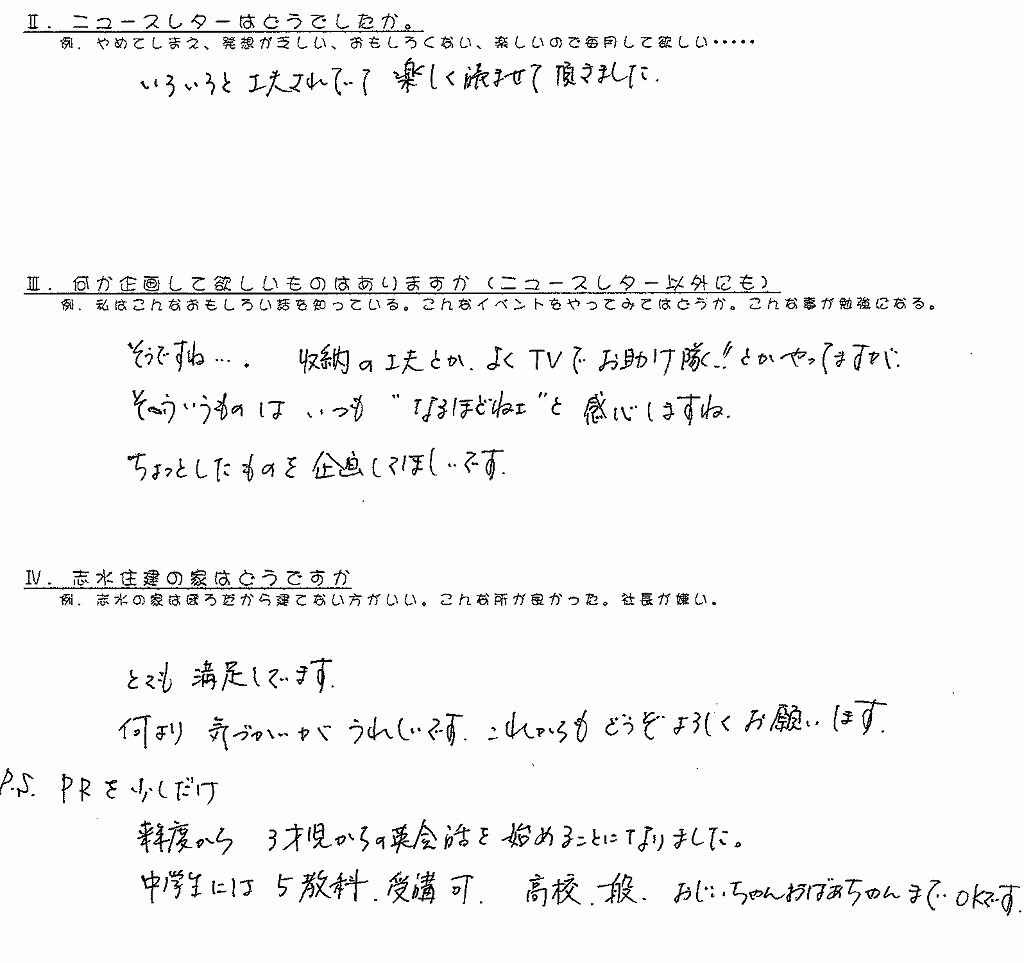 Ⅱ．ニュースレターはどうでしたか。
例．やめてしまえ、発想が乏しい、おもしろくない、楽しいので毎月して欲しい・・・・・
いろいろと 工夫されていて 楽しく読ませて 頂きました.
Ⅲ．何か企画して欲しいものはありますか（ニュースレター以外にも）
例．私はこんなおもしろい話を知っている。こんなイベントをやってみてはどうか。こんな事が勉強になる。
そうですね…. 収納の工夫とか. よくTVで お助け隊!!とかやってますが.
そういうものは いつも "なるほどねェ"と 感心しますね.
ちょっとしたものを 企画してほしいです.
Ⅳ．志水住建の家はどうですか
例．志水の家はぼろだから建てない方がいい。こんな所が良かった。社長が嫌い。
とても 満足しています.
何より 気づかいが うれしいです. これからも どうぞ よろしく お願いします.
P.S. PRを少しだけ
来年度から 3才児からの英会話を 始めることになりました。
中学生には 5教科.受講可. 高校.一般. おじいちゃんおばあちゃんまで OKです.